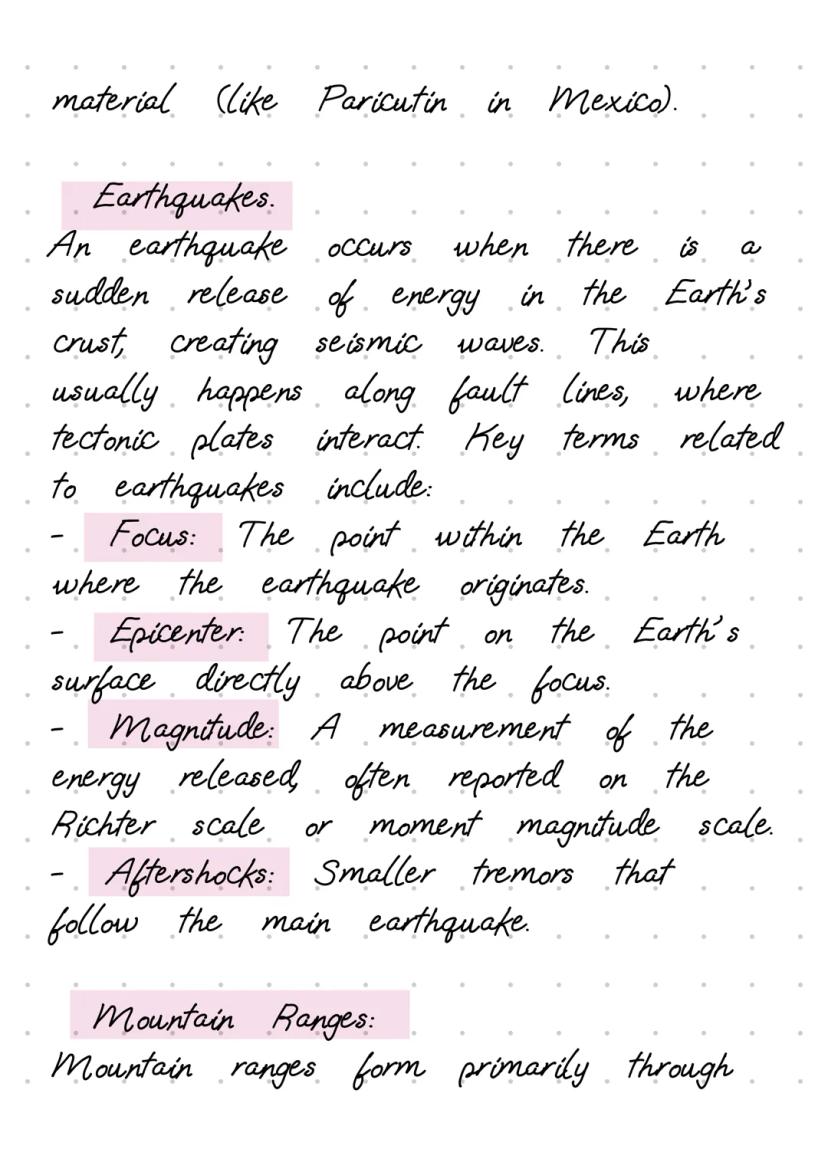 material (like Paricutin in Mexico).
Earthquakes.
An earthquake occurs when there is a
sudden release of energy in the Earth's
crust, creating seismic waves. This
usually happens along fault lines, where
tectonic plates interact. Key terms related
to earthquakes include:
- Focus: The point within the Earth
where the earthquake originates.
- Epicenter: The point on the Earth's
surface directly above the focus.
- Magnitude: A measurement of the
energy released, often reported on the
Richter scale or moment magnitude scale.
- Aftershocks: Smaller tremors that
follow the main earthquake.
Mountain Ranges:
Mountain ranges form primarily through